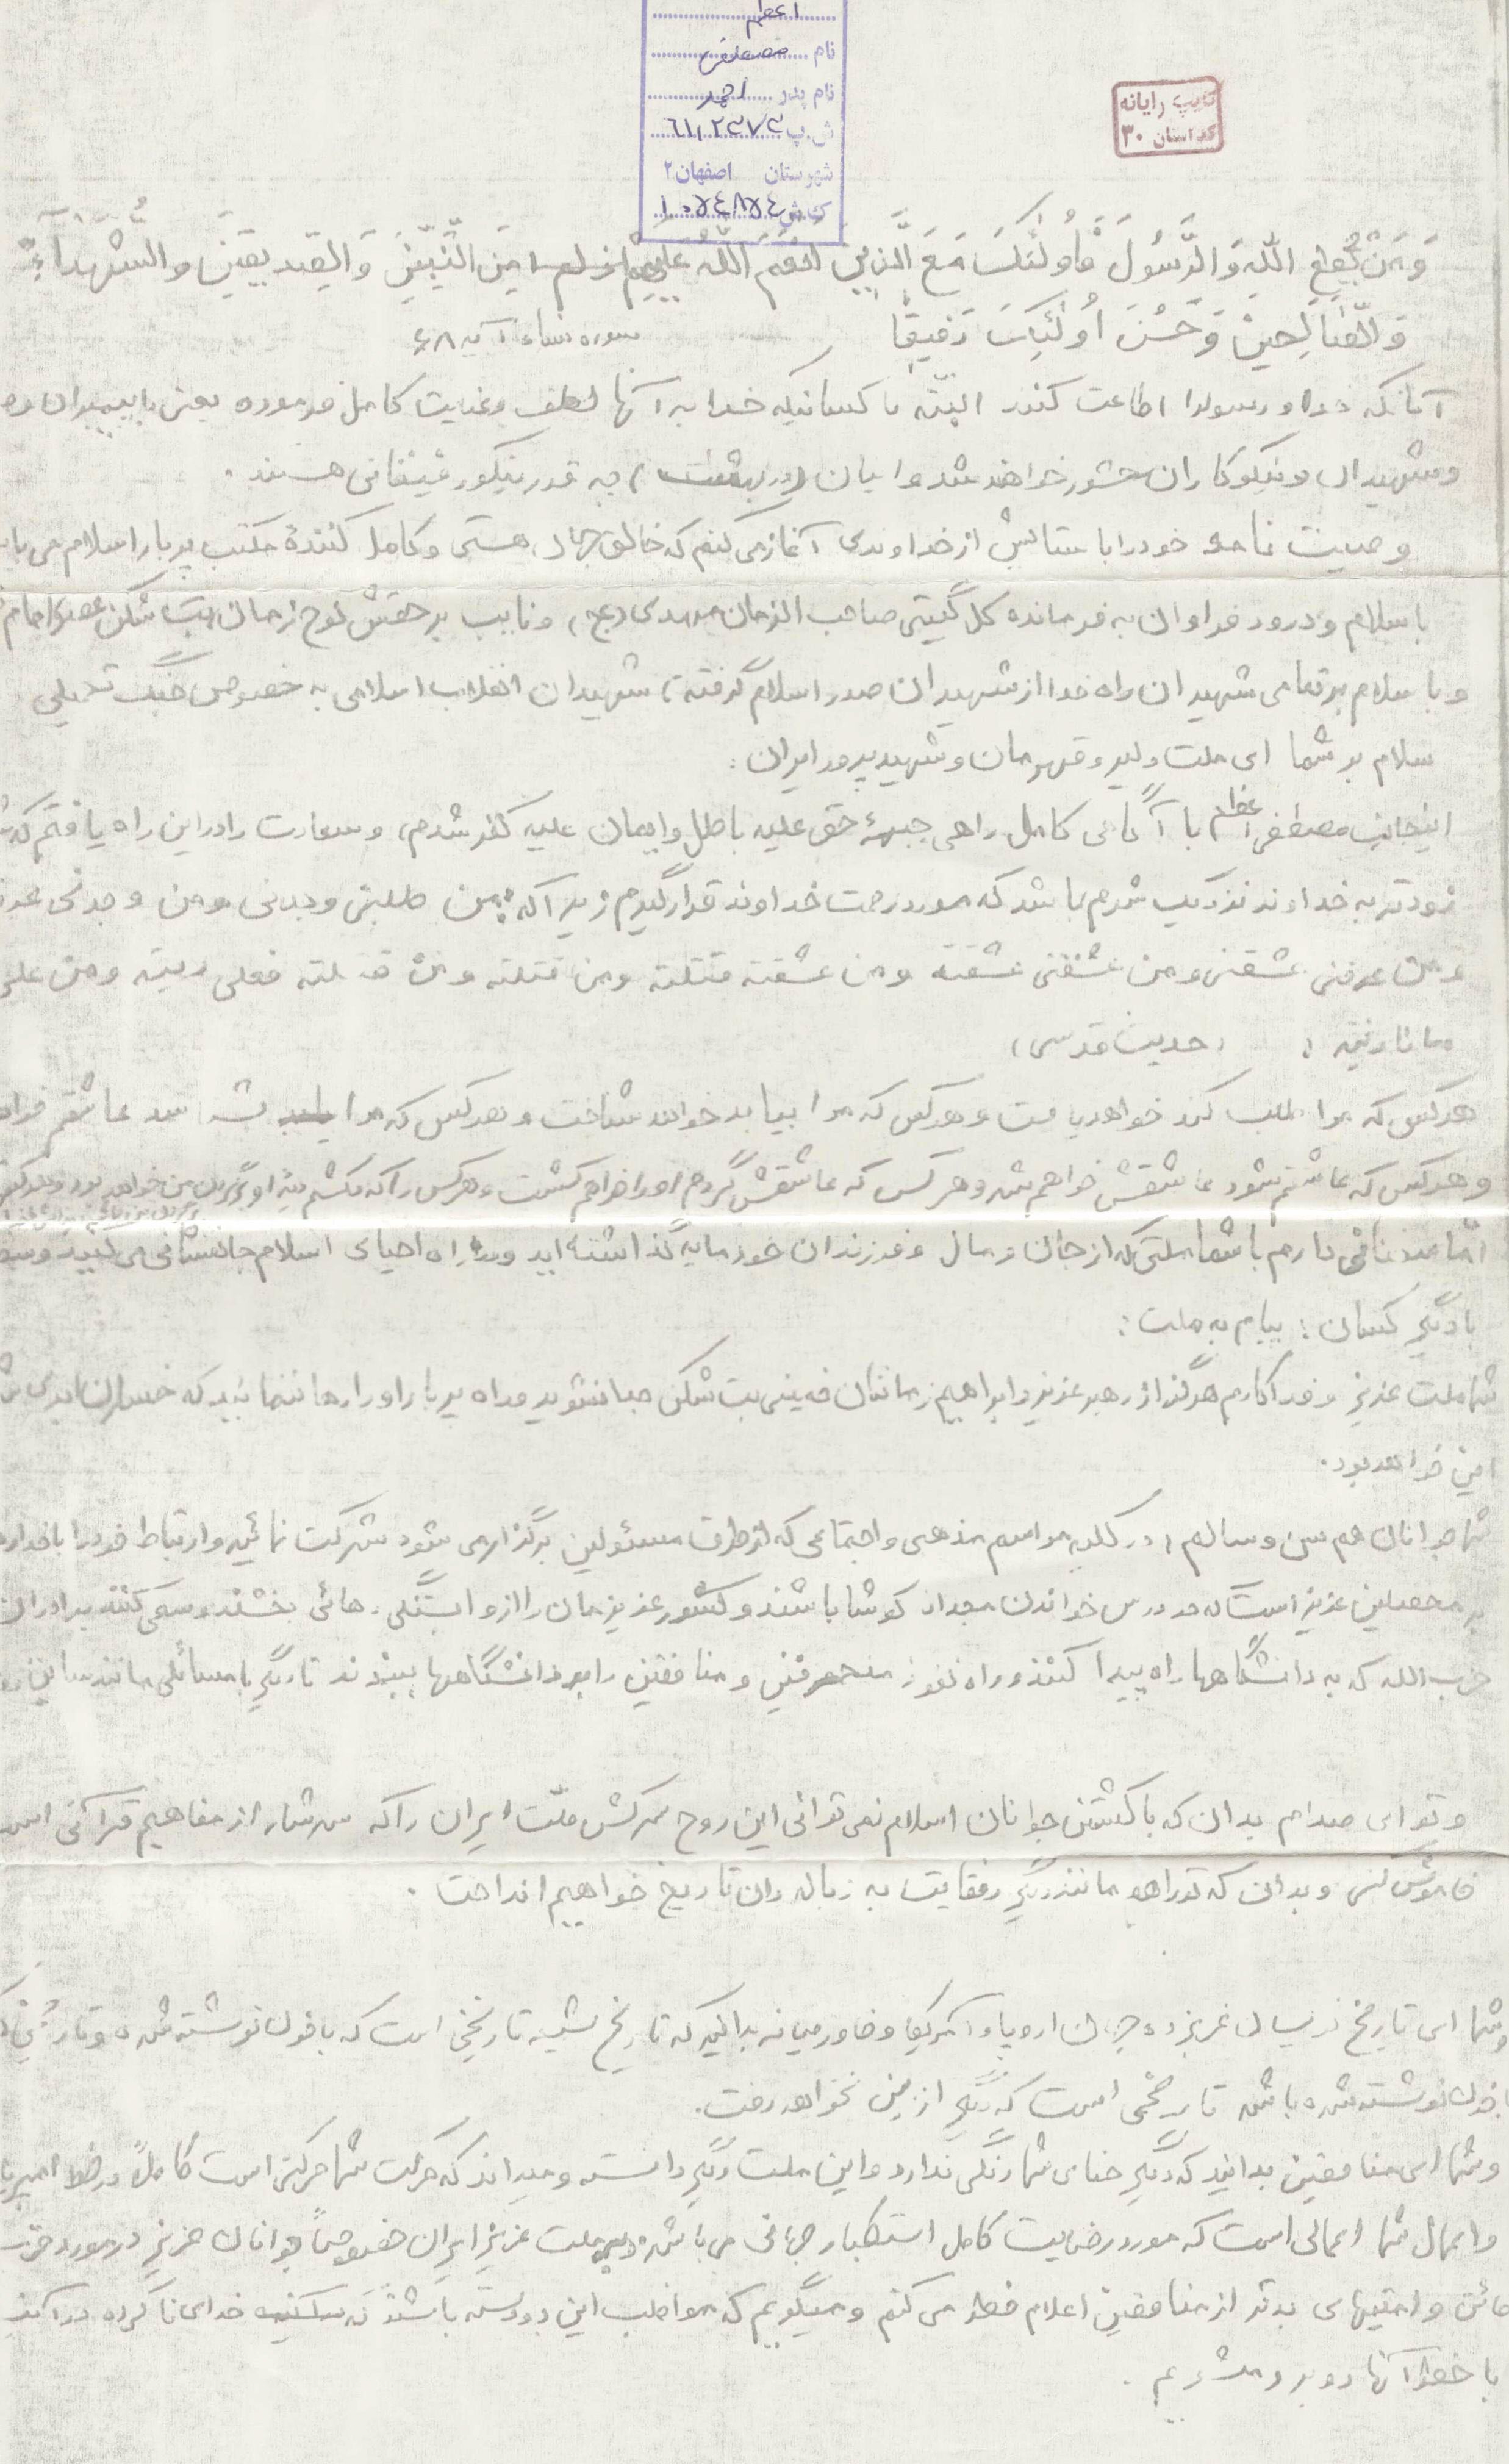 اعظم
نام مصطفی
نام پدر احمد
ش.پ
شهرستان اصفهان ۲
کد ش
تایپ رایانه
کد استان ۳۰
وَمَنْ یُطِعِ اللّهَ وَالرَّسُولَ فَأُولئِکَ مَعَ الَّذینَ اَنْعَمَ اللّهُ عَلَیْهِمْ مِنَ النَّبِیّینَ وَالصِّدیقینَ وَالشُّهَداءِ
وَالصّالِحینَ وَحَسُنَ اُولئِکَ رَفیقاً سوره نساء آیه ۶۸
آنانکه خدا و رسولرا اطاعت کنند البته با کسانیکه خدا به آنها لطف و عنایت کامل فرموده یعنی با پیمبران و
و شهیدان و نیکوکاران محشور خواهند شد و ایان (در بهشت) چه قدر نیکو رفیقانی هستند .
وصیت نامه خود را با ستایش از خداوندی آغاز می کنم که خالق جهان هستی و کامل کنندهٔ مکتب پر بار اسلام می
با سلام و درود فراوان به فرمانده کل گیتی صاحب الزمان مهدی (عج) و نایب بر حقش نوح زمان بت شکن عصر امام
و با سلام بر تمامی شهیدان راه خدا از شهیدان صدر اسلام گرفته تا شهیدان انقلاب اسلامی به خصوص جنگ تحمیلی
سلام بر شما ای ملت دلیر و قهرمان و شهید پرور ایران :
اینجانب مصطفی اعظم با آگاهی کامل راهی جبههٔ حق علیه باطل و ایمان علیه کفر شدم و سعادت را در این راه یافتم که
زودتر به خداوند نزدیک شدم باشد که مورد رحمت خداوند قرار گیرم زیرا که من طلبنی وجدنی و من وجدنی
و من عرفنی عشقنی و من عشقنی عشقته و من عشقته قتلته و من قتلته فعلی دیته و من علی
(حدیث قدسی)
هر کس که مرا طلب کند خواهد یافت و هر کس که مرا بیابد خواهد شناخت و هر کس که مرا عاشقم
و هر کس که عاشقم شود عاشقش خواهم شد و هر کس که عاشقش گردم او را خواهم کشت و هر کس را که بکشم دیه او بر من خواهد بود و هر کس
اما سخنانی دارم با شما ملتی که از جان و مال و فرزندان خود مایه گذاشته اید و در راه احیای اسلام جانفشانی می کنید و
با دیگر کسان : پیام به ملت :
شما ملت عزیز و فداکارم هرگز از رهبر عزیز و ابراهیم زمانتان خمینی بت شکن جدا نشوید و راه پر بار او را رها ننمائید که خسران ابدی
این خواهد بود .
شما جوانان هم سن و سالم در کلیه مواسم مذهبی و اجتماعی که از طرف مسئولین برگذار می شود شرکت نمائید و ارتباط خود را با خدا
بر محصلین عزیز است که در درس خواندن مجدانه کوشا باشند و کشور عزیزمان را از وابستگی رهائی بخشند و سعی کنند برادران
حزب الله که به دانشگاهها راه پیدا کنند و راه نفوذ منحرفین و منافقین را بر دانشگاهها ببندند تا دیگر با مسائلی مانند
و تو ای صدام بدان که با کشتن جوانان اسلام نمی توانی این روح سرکش ملّت ایران را که سرشار از مفاهیم قرآنی
خاموش کنی و بدان که تو را هم مانند دیگر رفقایت به زباله دان تاریخ خواهیم انداخت .
و شما ای تاریخ نویسان غربزده جهان اروپا و آمریکا و خاورمیانه بدانید که تاریخ شیعه تاریخی است که با خون نوشته شده و تاریخی
با خون نوشته شده باشد تاریخی است که دیگر از بین نخواهد رفت.
و شما ای منافقین بدانید که دیگر حنای شما رنگی ندارد و این ملت دیگر دانسته و میداند که حرکت شما حرکتی است کاملاً در خط
و اعمال شما اعمالی است که مورد رضایت کامل استکبار جهانی می باشد ملت عزیز ایران خصوصاً جوانان عزیز در مورد
خائن و امتیهای بدتر از منافقین اعلام خطر می کنم و میگویم که مواظب این دو دسته باشند خدای نا کرده در آینده
با خطر آنها روبرو شویم .